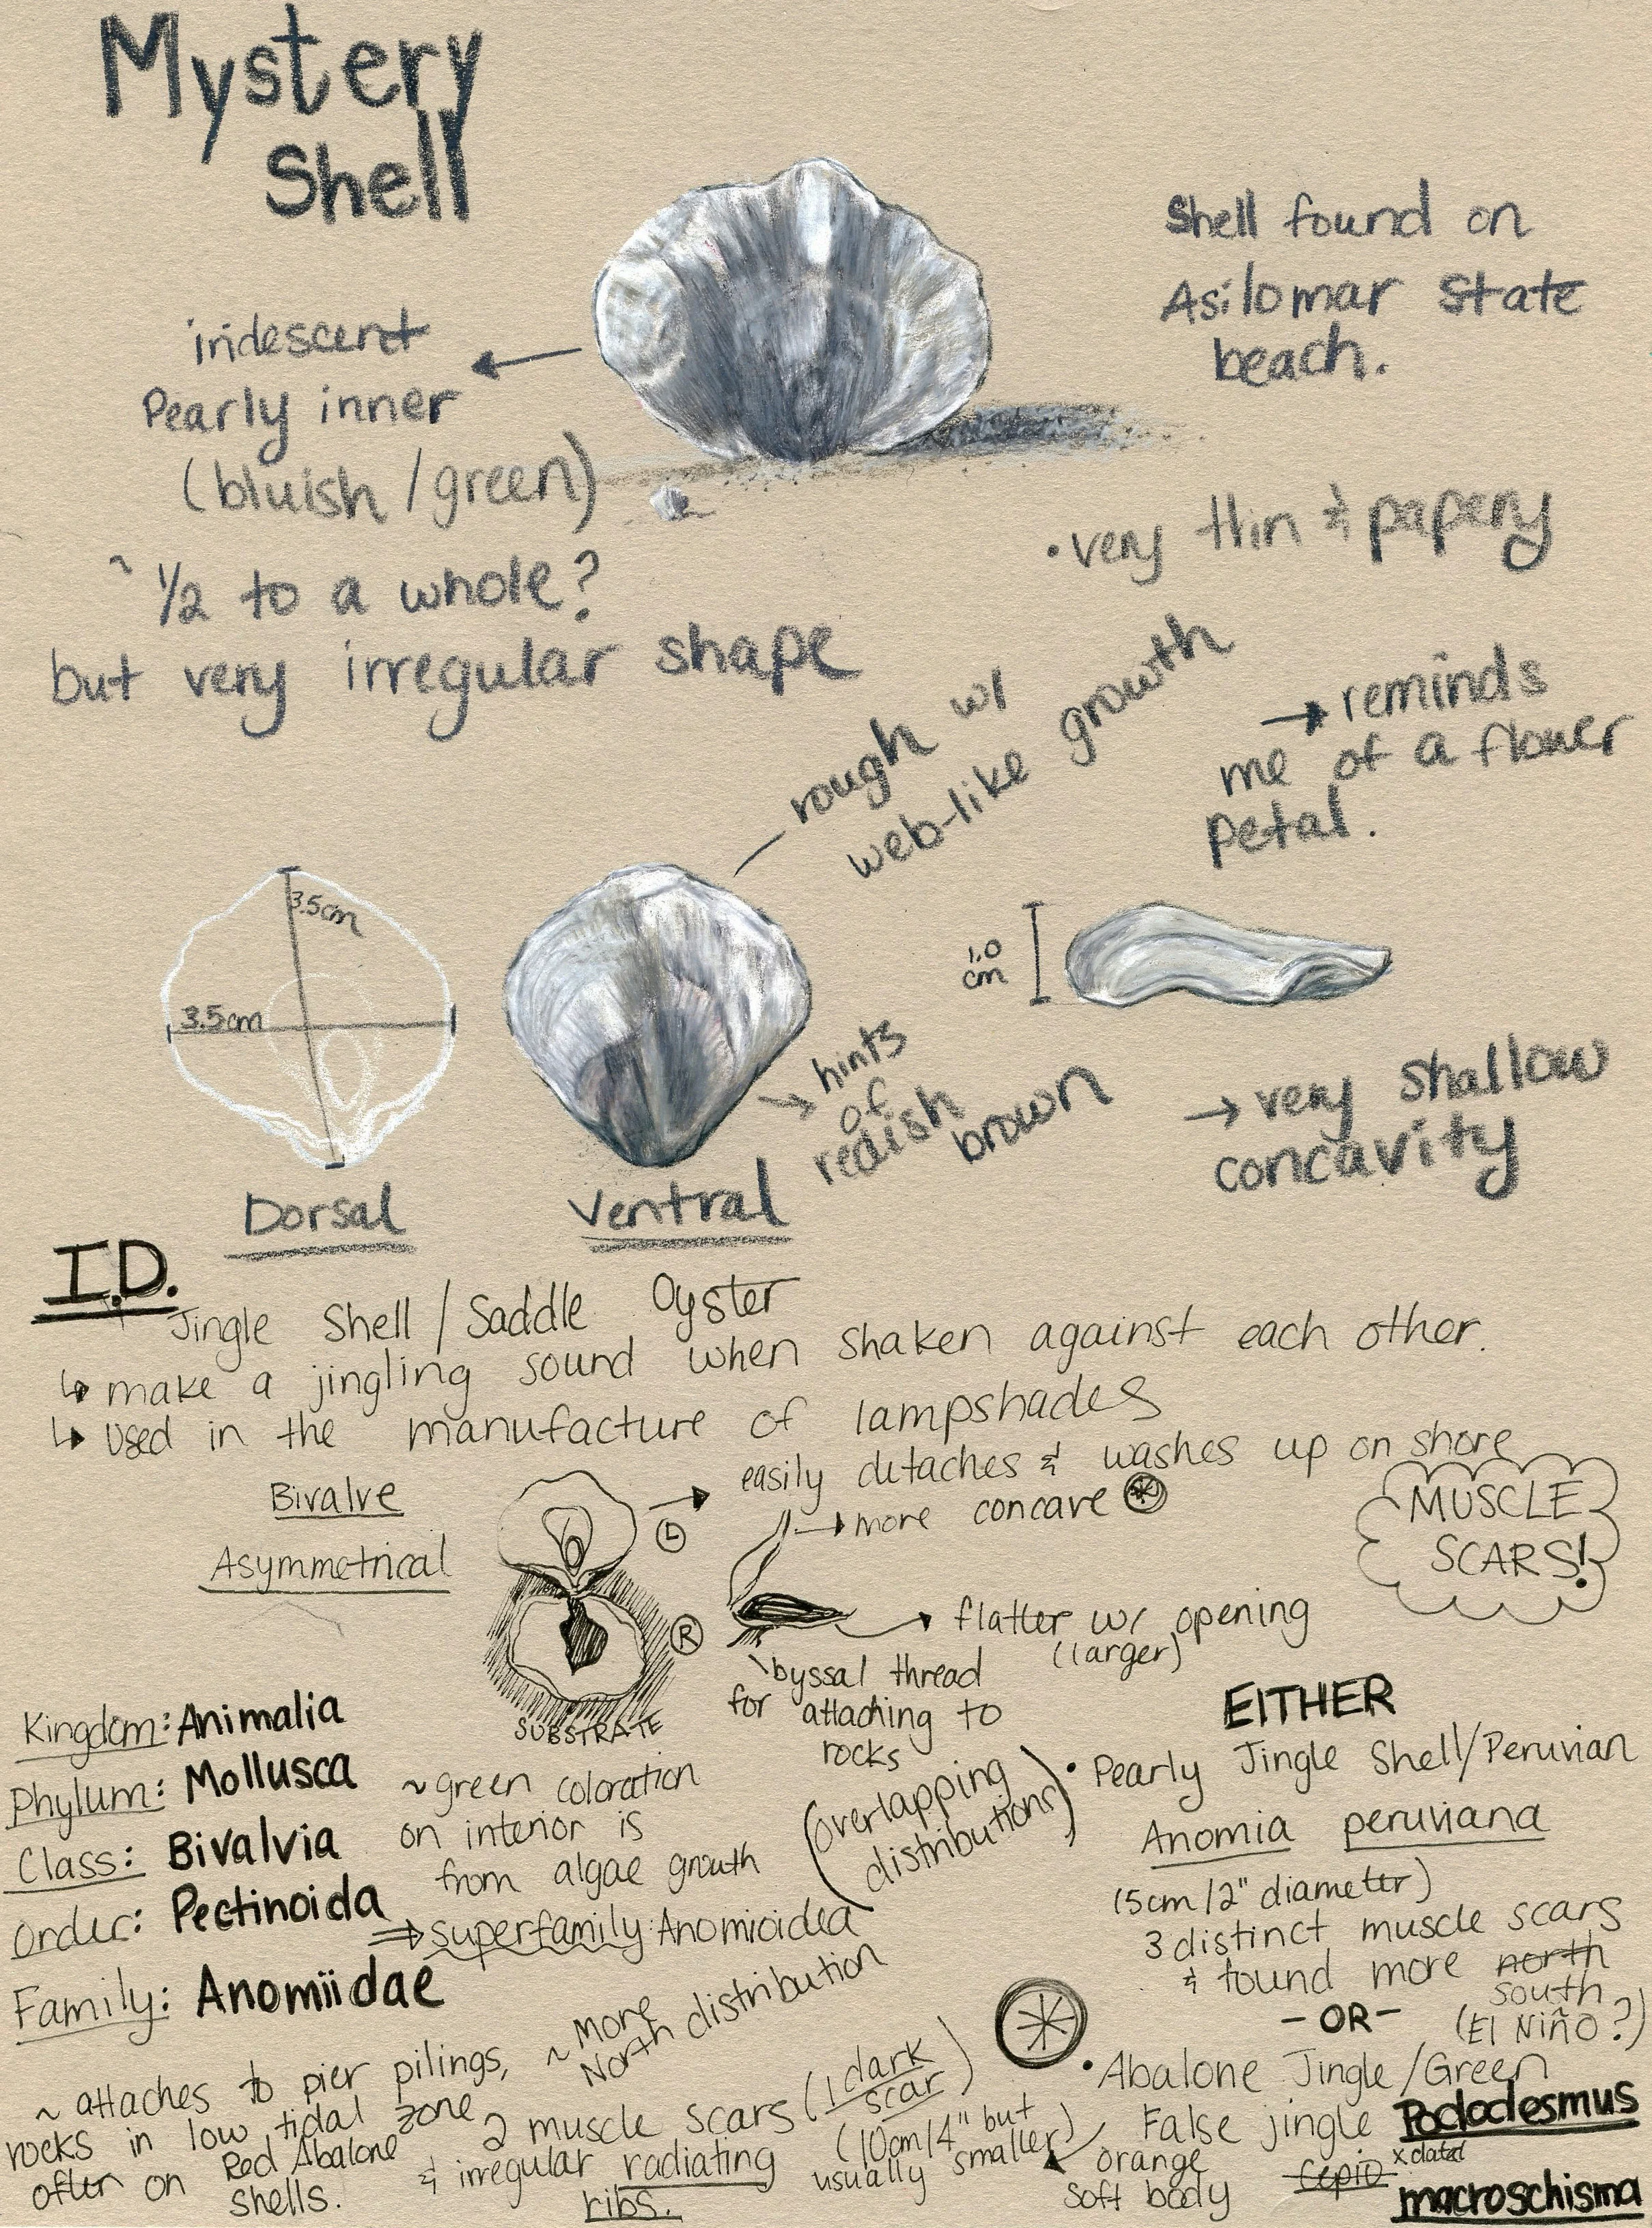 Mystery
Shell
Shell found on
Asilomar State
beach.
iridescent
Pearly inner
(bluish/green)
• very thin & papery
~ 1/2 to a whole?
but very irregular shape
rough w/
web-like growth
→ reminds
me of a flower
petal.
3.5cm
3.5cm
1.0
cm
→ hints
of
redish
brown
→ very shallow
concavity
Dorsal
Ventral
I.D.
Jingle Shell/Saddle Oyster
↳ make a jingling sound when shaken against each other.
↳ used in the manufacture of lampshades
Bivalve
Asymmetrical
L → easily detaches & washes up on shore
→ more concave
MUSCLE
SCARS!
R
→ flatter w/ opening
(larger)
byssal thread
for attaching to
rocks
SUBSTRATE
Kingdom: Animalia
Phylum: Mollusca
Class: Bivalvia
Order: Pectinoida
⇒ superfamily: Anomioidea
Family: Anomiidae
~ green coloration
on interior is
from algae growth
(overlapping
distributions)
EITHER
• Pearly Jingle Shell/Peruvian
Anomia peruviana
(5cm/2" diameter)
3 distinct muscle scars
& found more north
south
(El Niño?)
- OR -
• Abalone Jingle/Green
False jingle Pododesmus
cepio
macroschisma
orange
soft body
~ attaches to pier pilings,
rocks in low tidal zone
often on Red Abalone
shells.
~ More
North distribution
2 muscle scars (1 dark
scar)
& irregular radiating
ribs.
(10cm/4" but
usually smaller)